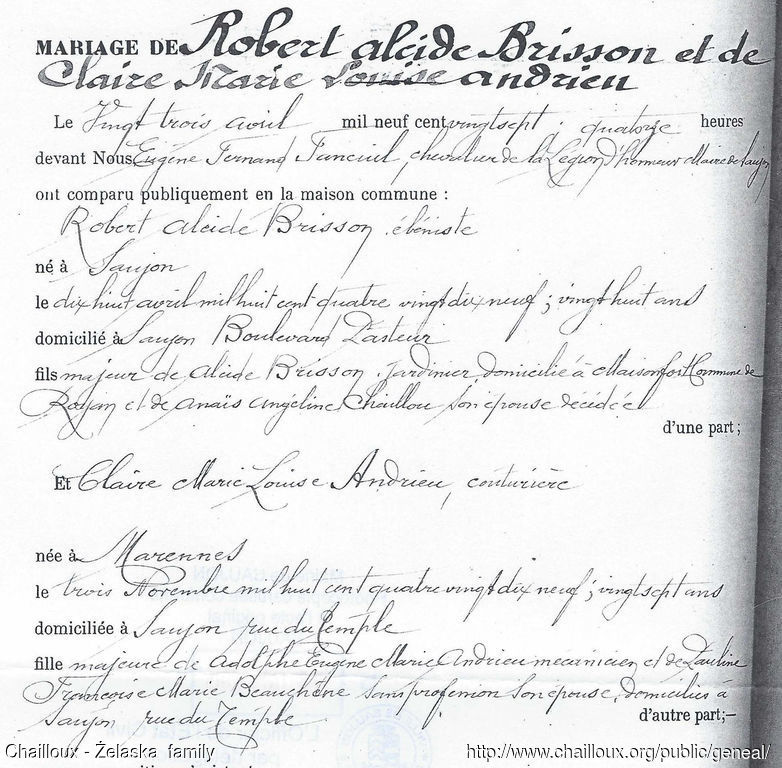 MARIAGE DE Robert alcide Brisson et de
Claire Marie Louise andrieu
Le Vingt trois avril mil neuf cent vingt sept . quatorze heures
devant Nous Eugène Fernand Faneuil, chevalier de la Légion d'honneur Maire de Saujon
ont comparu publiquement en la maison commune :
Robert alcide Brisson ébéniste
né à Saujon
le dix huit avril mil huit cent quatre vingt dix neuf ; vingt huit ans
domicilié à Saujon Boulevard Pasteur
fils majeur de alcide Brisson Jardinier domicilié à Maisonfort Commune de
Royan et de anaïs angeline Chaillou son épouse décédée
d'une part ;
Et Claire Marie Louise Andrieu, couturière
née à Marennes
le trois Novembre mil huit cent quatre vingt dix neuf ; vingt sept ans
domiciliée à Saujon rue du Temple
fille majeure de adolphe Eugène Marie Andrieu mecanicien et de Pauline
Françoise Marie Beauchêne sans profession son épouse, domiciliés à
Saujon rue du Temple
d'autre part ;—
Chailloux - Żelaska family http://www.chailloux.org/public/geneal/